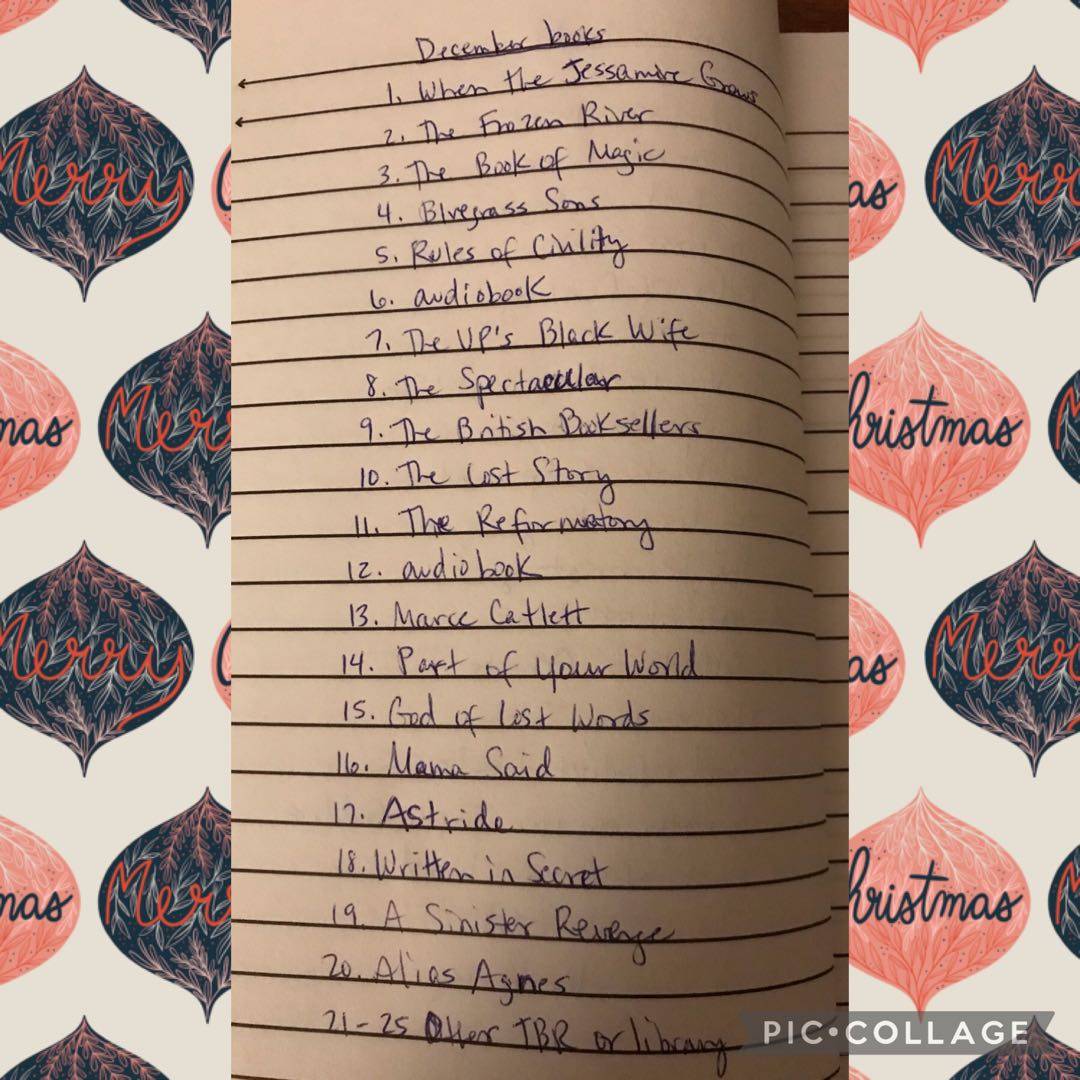 December books
1. When the Jessamine Grows
2. The Frozen River
3. The Book of Magic
4. Bluegrass Sons
5. Rules of Civility
6. audiobook
7. The VP's Black Wife
8. The Spectacular
9. The British Booksellers
10. The Lost Story
11. The Reformatory
12. audiobook
13. Marce Catlett
14. Part of Your World
15. God of Lost Words
16. Mama Said
17. Astride
18. Written in Secret
19. A Sinister Revenge
20. Alias Agnes
21-25 Other TBR or library
Merry
Christmas
PIC•COLLAGE